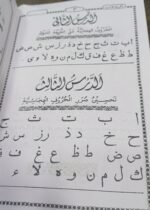 الدرس الثاني
ا ب ت ث ج ح خ د ذ ر ز س ش ص ض
ط ظ ع غ ف ق ك ل م ن و ه لا ء ي
الدرس الثالث
ا ب ت ث ج
ح خ د ذ ر ز س ش
ص ض ط ظ ع غ ف ق
ك ل م ن و ه لا ء ي